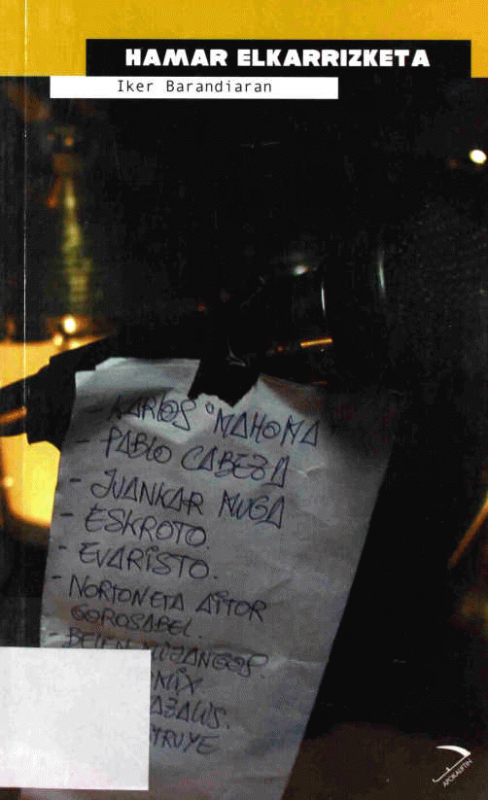 HAMAR ELKARRIZKETA
Iker Barandiaran
- KARLOS "MAHOMA
- PABLO CABEZA
- JUANKAR MUGA
- ESKROTO.
- EVARISTO.
- NORTON ETA AITOR
GOROSABEL.
- BELEN
MIX
TRUYE
APOKALIPTIN